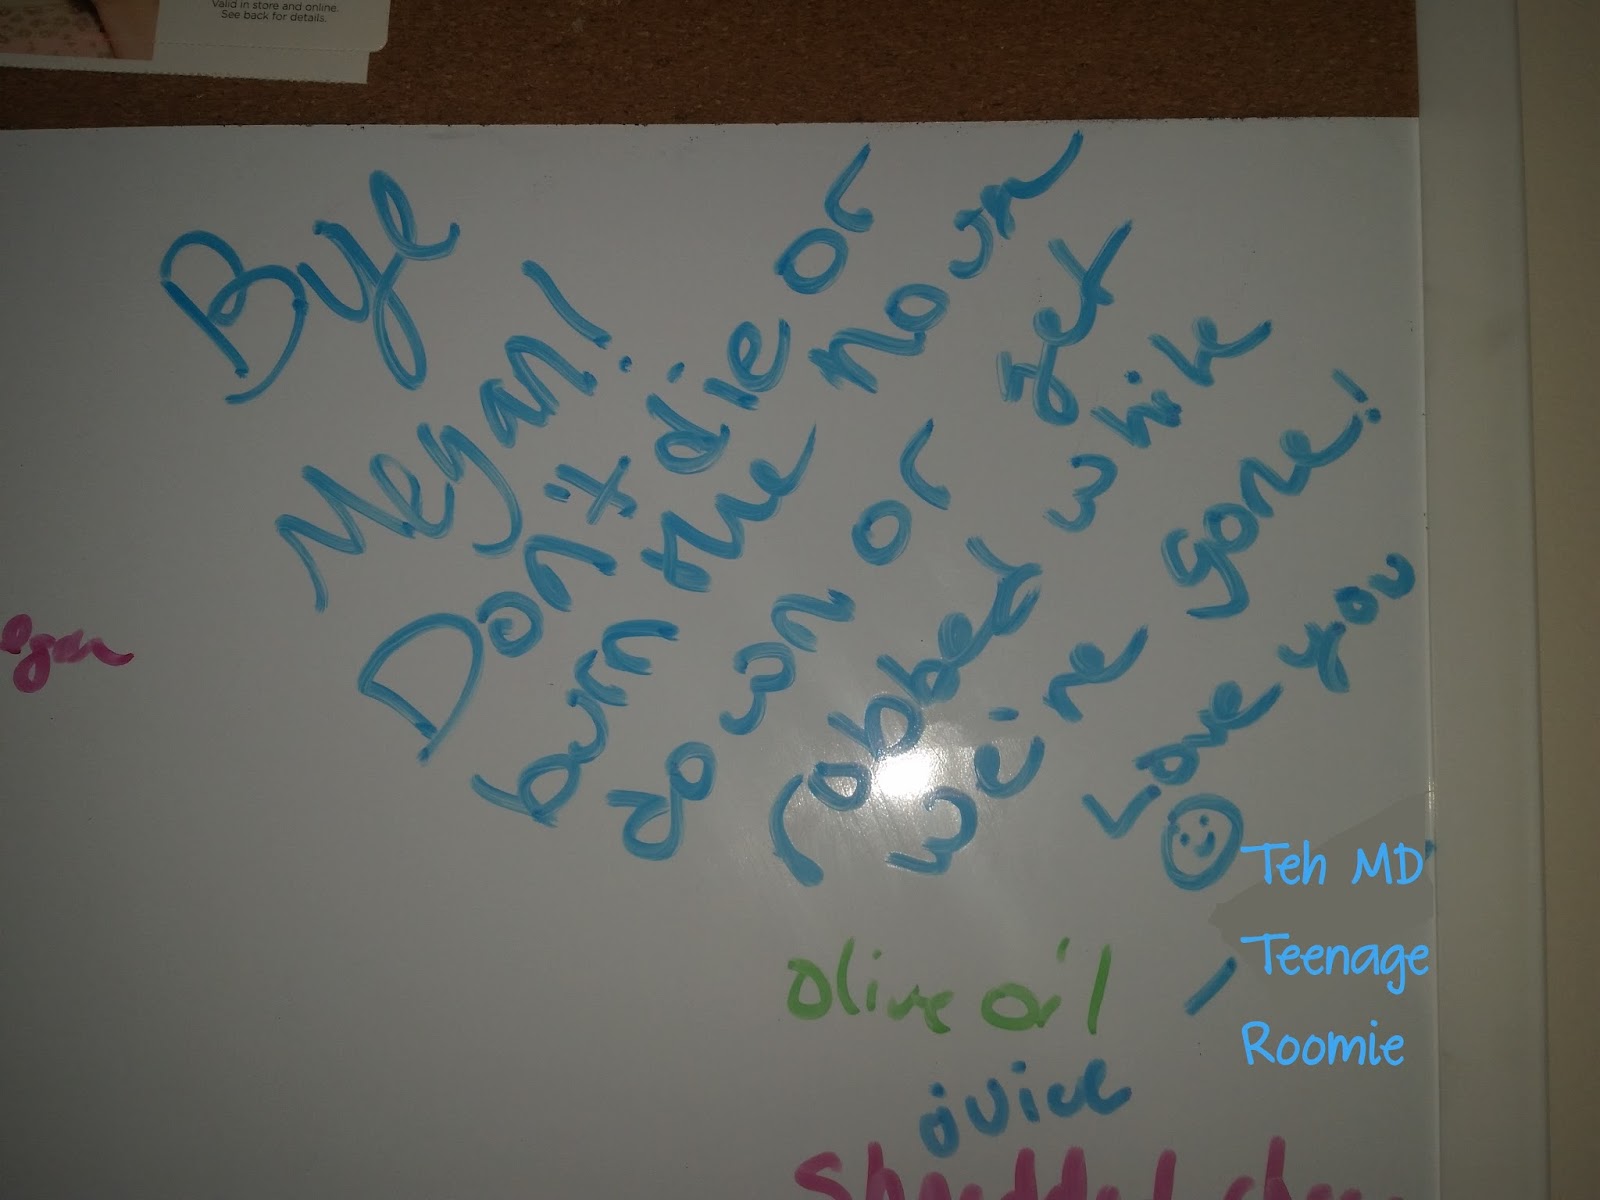 Valid in store and online.
See back for details.
Bye
Megan!
Don't die or
burn the house
down or get
robbed while
we're gone!
Love you
- Teh MD,
Teenage
Roomie
egan
olive oil
juice
Shredded